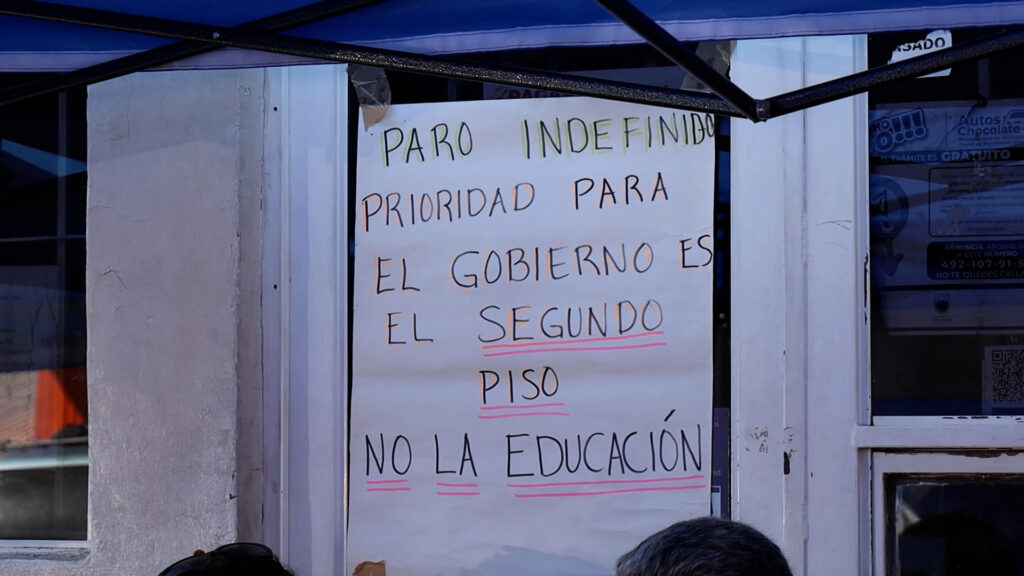 PARO INDEFINIDO
PRIORIDAD PARA
EL GOBIERNO ES
EL SEGUNDO
PISO
NO LA EDUCACIÓN
Autos
Chocolate
TRÁMITE ES GRATUITO
DENUNCIA
A ESTE NÚMERO
492-107-91-
NO TE QUEDES